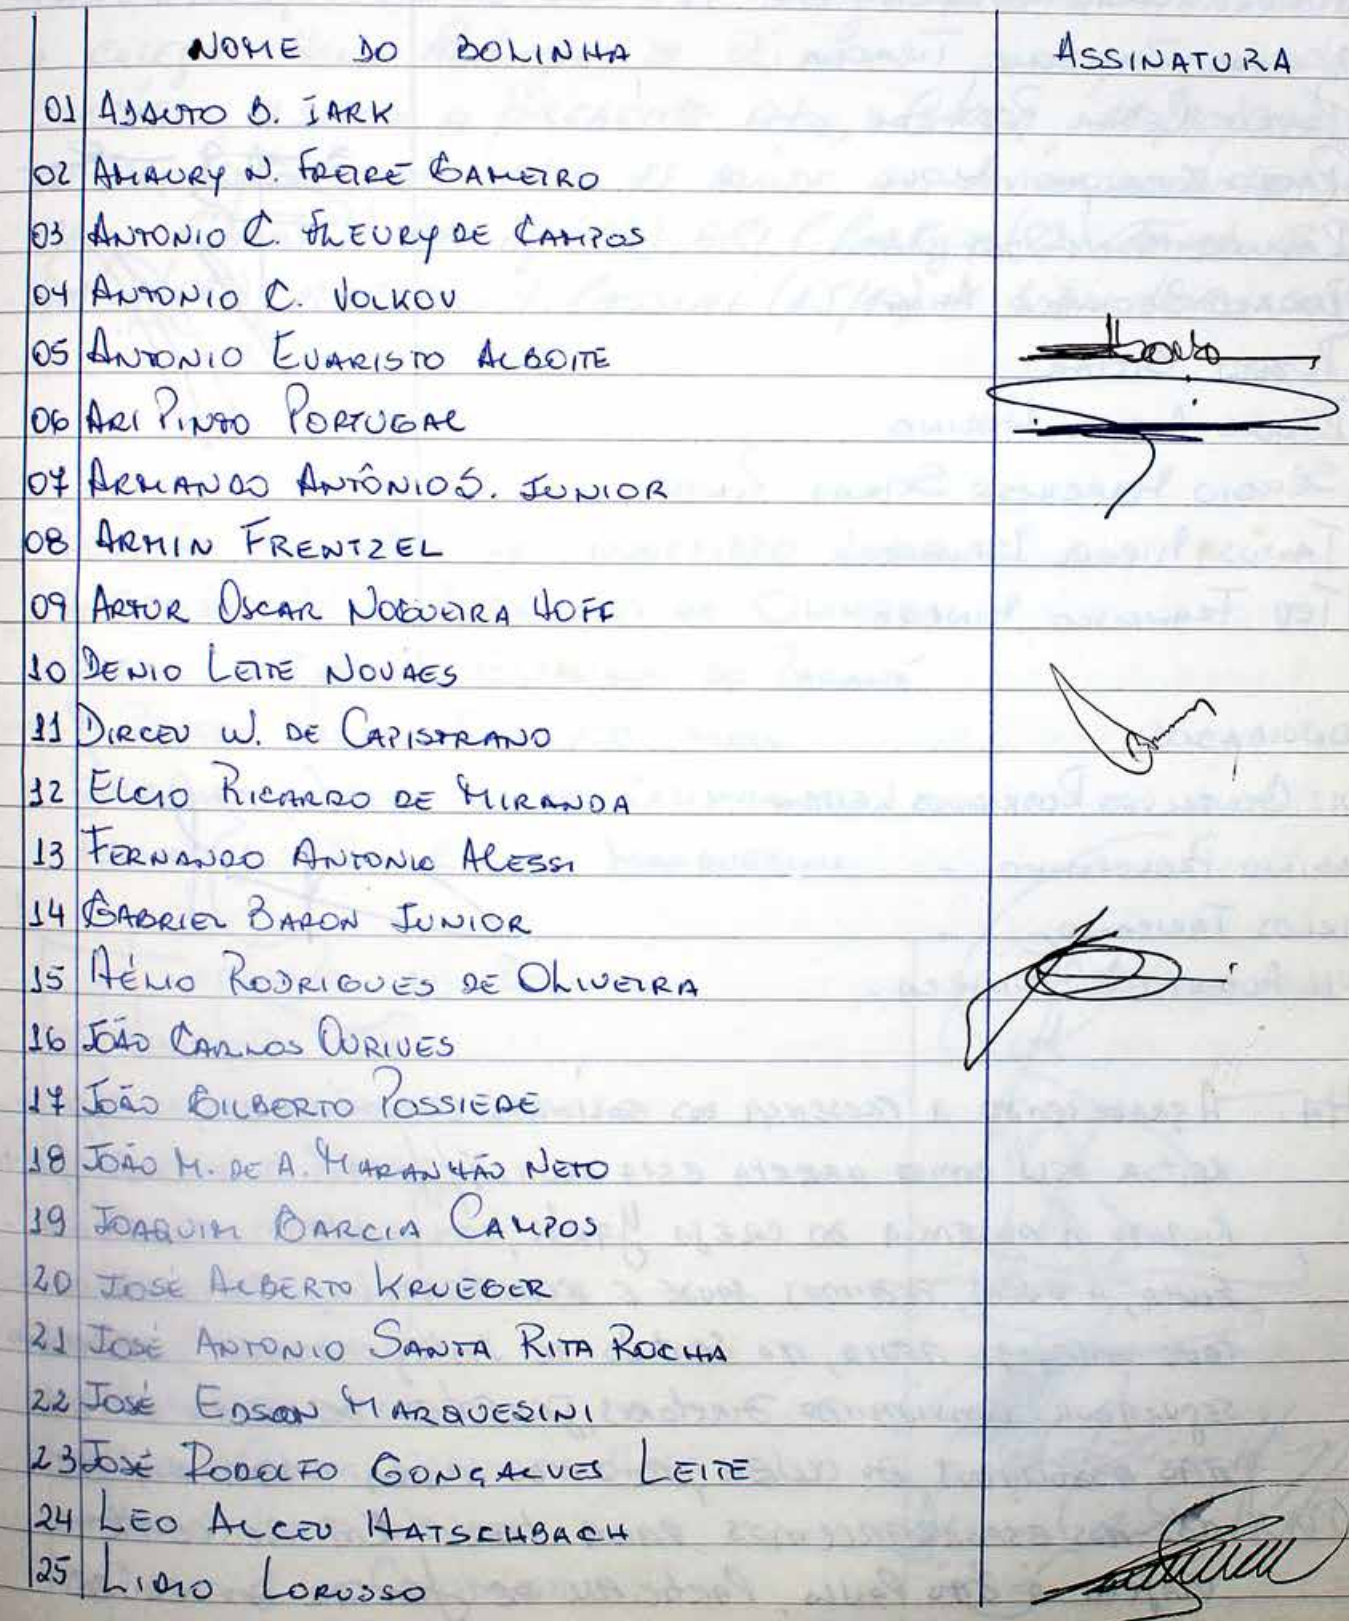 NOME DO BOLINHA ASSINATURA
01 ADAUTO B. IARK
02 AMAURY N. FREIRE GAMEIRO
03 ANTONIO C. FLEURY DE CAMPOS
04 ANTONIO C. VOLKOV
05 ANTONIO EVARISTO ALBOITE
06 ARI PINTO PORTUGAL
07 ARMANDO ANTÔNIO S. JUNIOR
08 ARMIN FRENTZEL
09 ARTUR OSCAR NOGUEIRA HOFF
10 DENIO LEITE NOVAES
11 DIRCEU W. DE CAPISTRANO
12 ELCIO RICARDO DE MIRANDA
13 FERNANDO ANTONIO ALESSI
14 GABRIEL BARON JUNIOR
15 HÉLIO RODRIGUES DE OLIVEIRA
16 JOÃO CARLOS OURIVES
17 JOÃO GILBERTO POSSIEDE
18 JOÃO M. DE A. MARANHÃO NETO
19 JOAQUIM GARCIA CAMPOS
20 JOSÉ ALBERTO KRUEGER
21 JOSÉ ANTONIO SANTA RITA ROCHA
22 JOSÉ EDSON MARQUESINI
23 JOSÉ RODOLFO GONÇALVES LEITE
24 LEO ALCEU HATSCHBACH
25 LIDIO LORUSSO